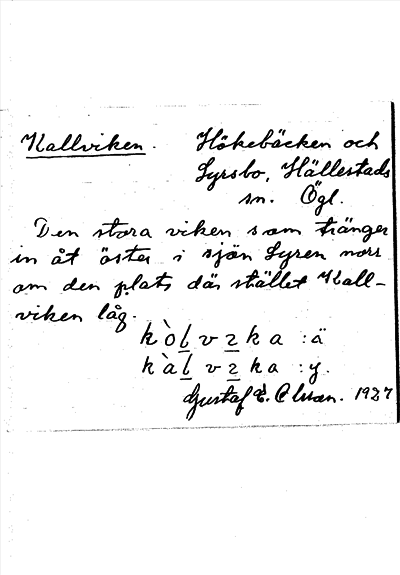 Kallviken. Hökebäcken och
Lyrsbo, Hällestads
sn. Ögl.
Den stora viken som tränger
in åt öster i sjön Lyren norr
om den plats där stället Kall-
viken låg.
kòlvzka : ä
kàlvzka : y.
Gustaf E. Olsson. 1927